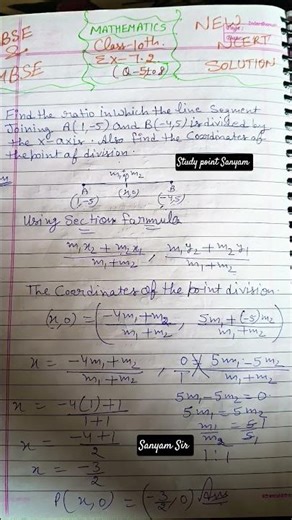 BSE
MATHEMATICS
Class-10th.
Ex-7.2
(Q-5to8)
NEW
NCERT
SOLUTION
MBSE
Find the ratio in which the line Segment
Joining A(1,-5) and B(-4,5) is divided by
the x-axis. Also find the Coordinates of
the point of division.
Study point Sanyam
m1 m2
A B
(1,-5) (x,0) (-4,5)
Using Section formula
m1x2 + m2x1 / m1+m2 , m1y2 + m2y1 / m1+m2
The Coordinates of the point division
(x,0) = ( -4m1+m2 / m1+m2 , 5m1+(-5)m2 / m1+m2 )
x = -4m1+m2 / m1+m2 , 0/1 = 5m1-5m2 / m1+m2
x = -4(1)+1 / 1+1
5m1-5m2=0
5m1=5m2
m1/m2 = 5/5
1:1
x = -4+1 / 2
Sanyam Sir
x = -3/2
P(x,0) = (-3/2,0) Ans